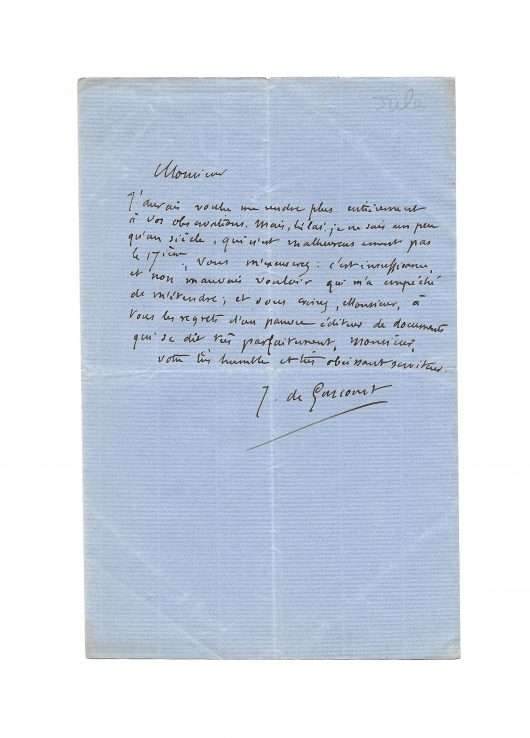 Monsieur
J'aurais voulu me rendre plus entièrement
à vos observations. Mais, hélas! je ne sais un peu
qu'un siècle, qui n'est malheureusement pas
le 17ième. Vous m'excuserez: c'est insuffisance,
et non mauvais vouloir qui m'a empêché
de m'étendre; et vous croirez, Monsieur, à
tous les regrets d'un pauvre éditeur de documents
qui se dit très parfaitement, Monsieur,
votre très humble et très obéissant serviteur.
J. de Goncourt